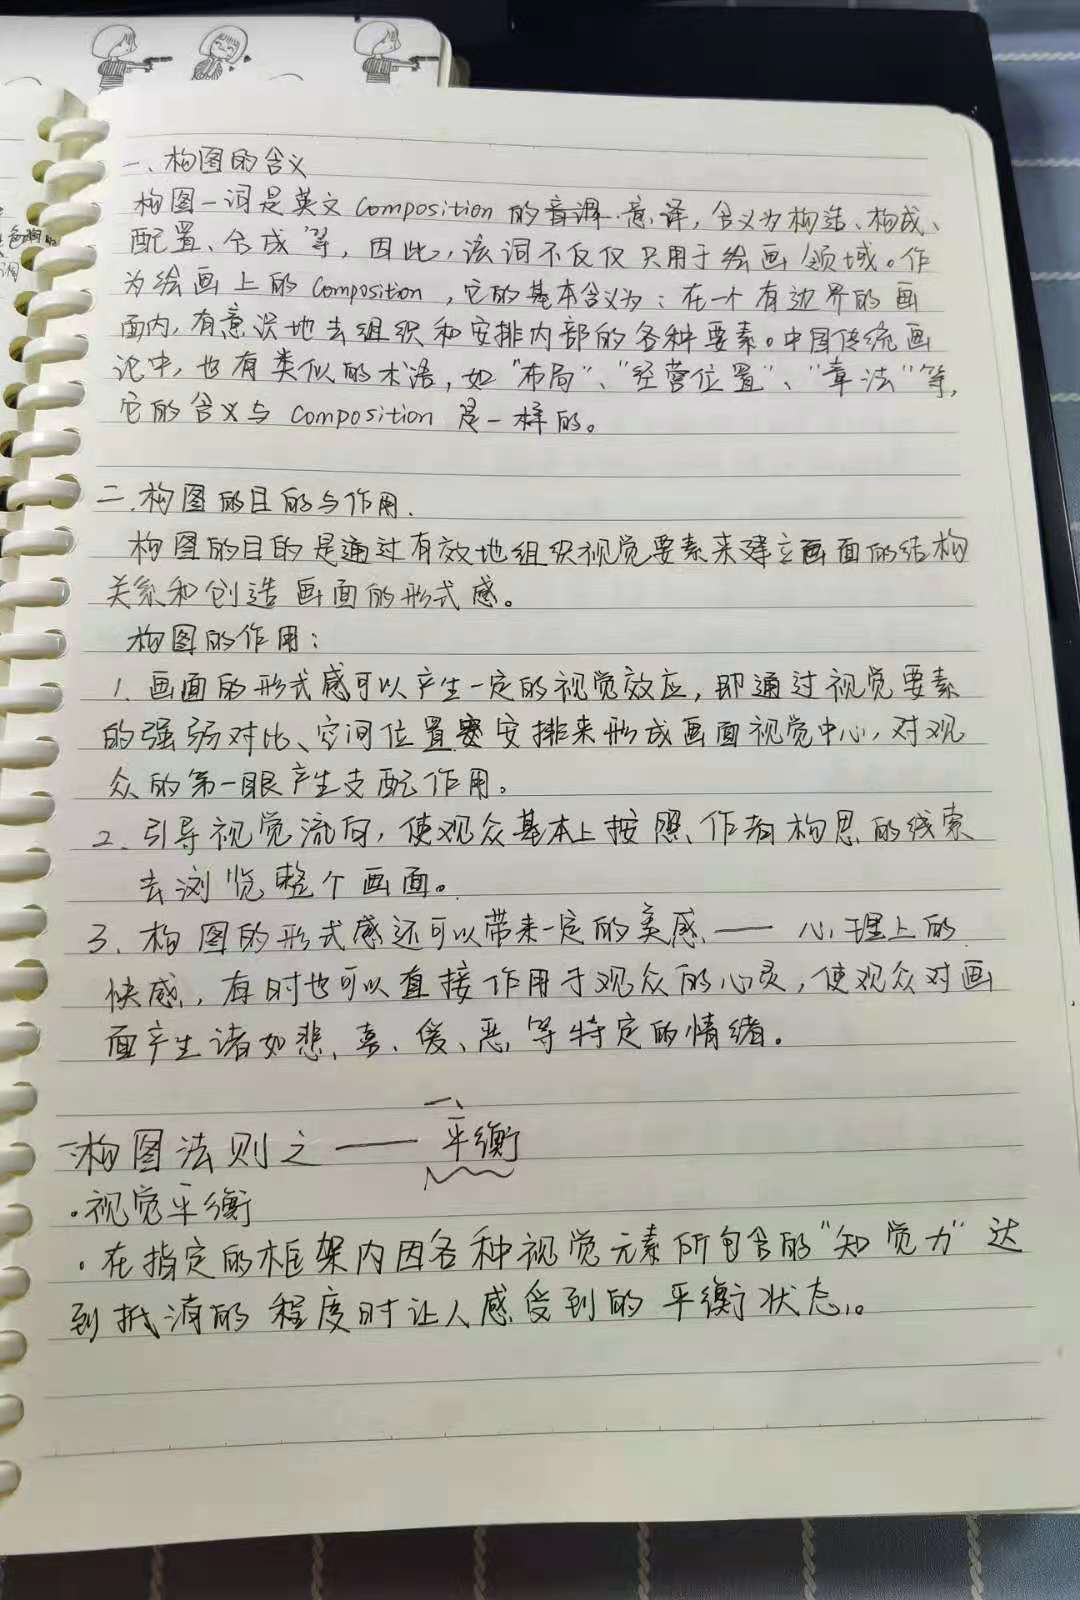 一、构图的含义
构图一词是英文 Composition 的音译意译，含义为构造、构成、
配置、合成等，因此，该词不仅仅只用于绘画领域。作
为绘画上的 Composition，它的基本含义为：在一个有边界的画
面内，有意识地去组织和安排内部的各种要素。中国传统画
论中，也有类似的术语，如“布局”、“经营位置”、“章法”等，
它的含义与 Composition 是一样的。
二.构图的目的与作用.
构图的目的是通过有效地组织视觉要素来建立画面的结构
关系和创造画面的形式感。
构图的作用：
1、画面的形式感可以产生一定的视觉效应，即通过视觉要素
的强弱对比、空间位置安排来形成画面视觉中心，对观
众的第一眼产生支配作用。
2、引导视觉流向，使观众基本上按照作者构思的线索
去浏览整个画面。
3、构图的形式感还可以带来一定的美感——心理上的
快感，有时也可以直接作用于观众的心灵，使观众对画
面产生诸如悲、喜、爱、恶等特定的情绪。
构图法则之——平衡
·视觉平衡
·在指定的框架内因各种视觉元素所包含的“知觉力”达
到抵消的程度时让人感受到的平衡状态。